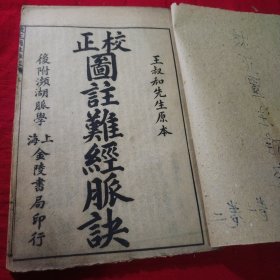 校正
王叔和先生原本
圖註難經脈訣
後附瀕湖脈學
上海金陵書局印行